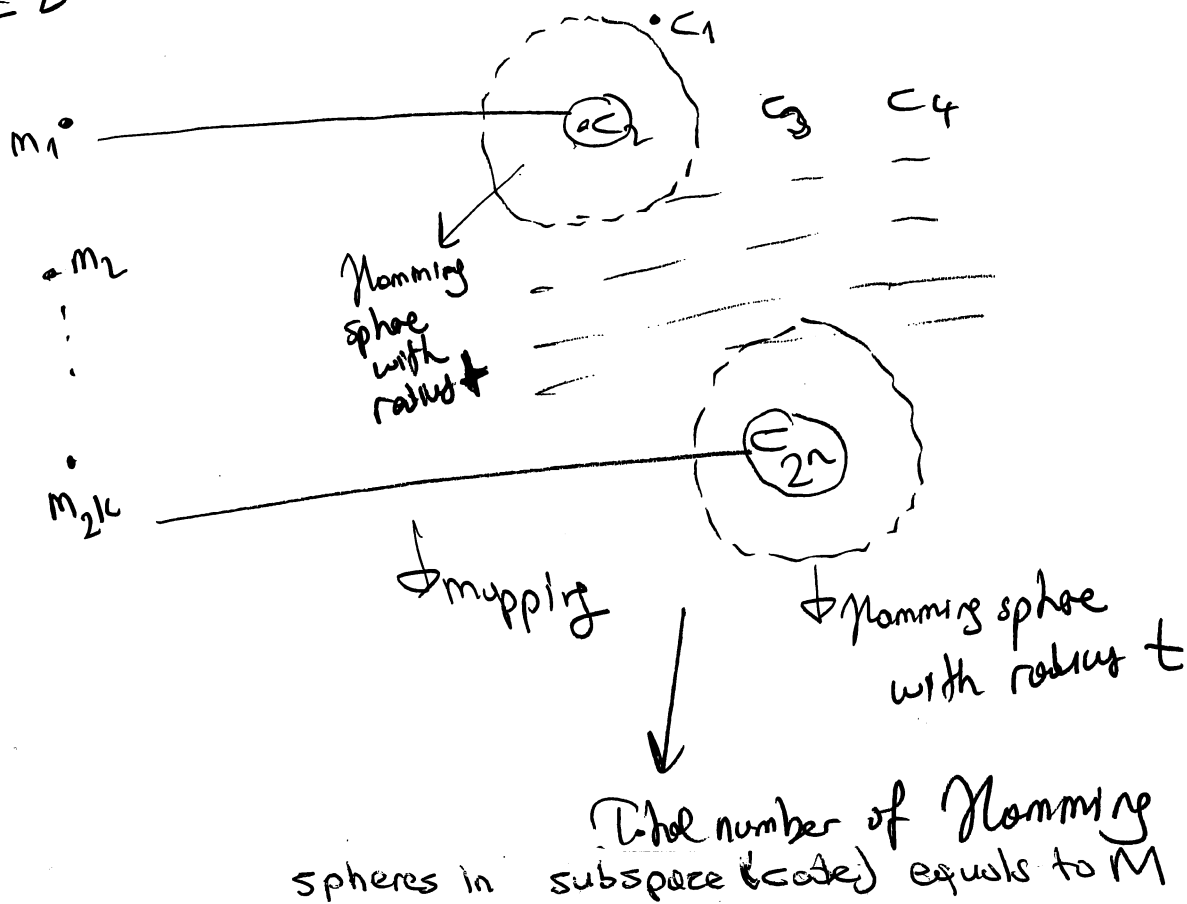 C1
m1
C2
C3
C4
m2
Hamming
sphere
with
radius t
C2n
m2k
mapping
Hamming sphere
with radius t
Total number of Hamming
spheres in subspace (code) equals to M